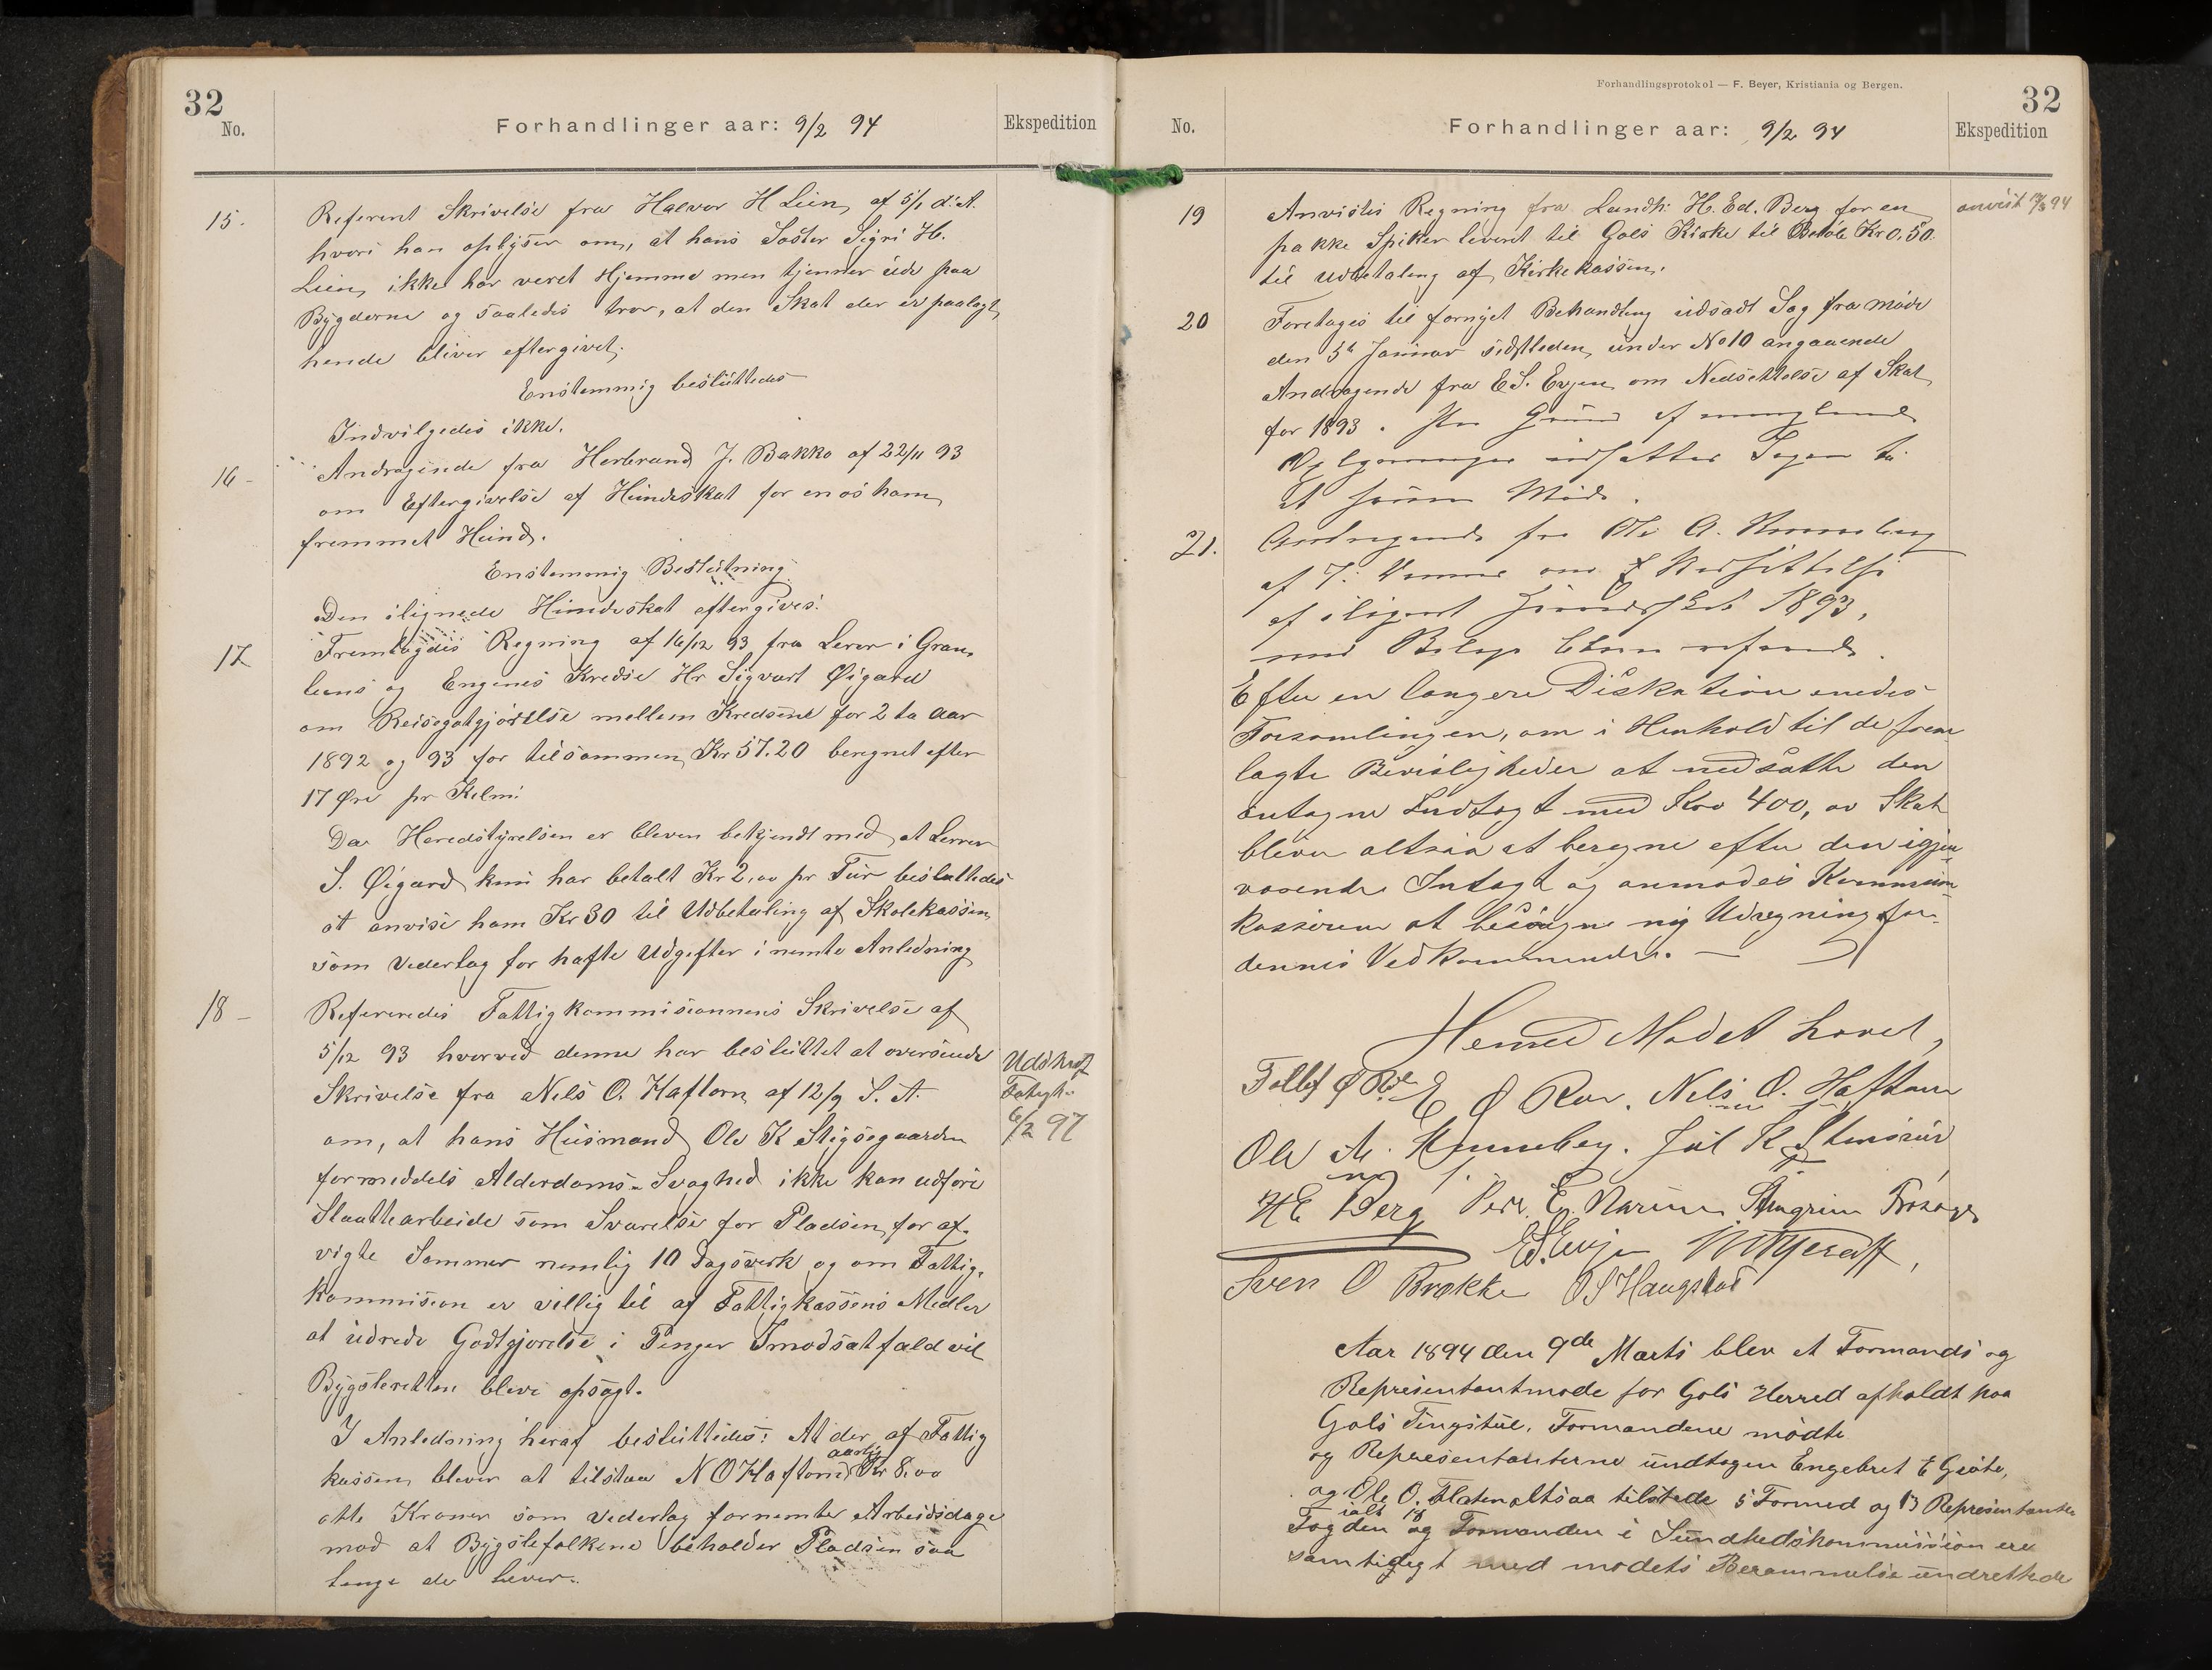 32
No.
Forhandlinger aar: 9/2 94
Ekspedition
15.
Referert Skrivelse fra Halvor H Lien, af 5/1 d. A.
hvori han oplyser om, at hans Søster Sigri H.
Lien, ikke har veret Hjemme men tjenner ude paa
Bygderne og saaledes tror, at den Skat der er paalagt
hende bliver eftergivet.
Enstemmig besluttedes
Indvilgedes ikke.
16 -
Andragende fra Herbrand J. Bakko af 22/11 93
om Eftergivelse af Hundeskat for en os ham
fremmet Hund.
Enstemmig Beslutning
Den ilignede Hundeskat eftergives.
17
Fremlagdes Regning af 16/12 93 fra Lerer i Gran,
liens og Engenes Kredse Hr Sigvart Øigard
om Reisegotgjørelse mellem Kredsene for 2 to Aar
1892 og 93 for tilsammen Kr 57.20 beregnet efter
17 Øre pr Kelm.
Da Heredstyrelsen er bleven bekjendt med, at Lerrer
S. Øigard kun har betalt Kr 2,00 pr Tur besluttedes
at anvise ham Kr 30 til Udbetaling af Skolekassen
som Vederlag for hafte Udgifter i nemte Anledning
18 -
Refereredes Fattigkommisionnens Skrivelse af
5/12 93 hvorved denne har besluttet at oversende
Skrivelse fra Nels O. Haftorn af 12/9 S. A.
om, at hans Husmand Ole K Stigsegaarden
formeddels Alderdoms-Svaghed ikke kan udføre
Slaattearbeide som Svarelse for Pladsen for af-
vigte Sommer nemlig 10 Dagsverk og om Fattig,
kommision er villig til af Fattigkassens Medler
at udrede Godtgjorelse i Penger Imodsatfald vil
Bygsleretten blive opsagt.
I Anledning heraf besluttedes: At der af Fattig
kassen bliver at tilstaa N O Haftorn aarlig Kr 8,00
otte Kroner som Vederlag for nemte Arbeidsdage
mod at Bygslefolkene beholder Pladsen saa
lenge de lever.
Udskrift
6/2 97
Forhandlingsprotokol — F. Beyer, Kristiania og Bergen.
32
No.
Forhandlinger aar: 9/2 94
Ekspedition
19
Anvistes Regning fra Landh. H. Ed. Berg for en
pakke Spiker leveret til Gols Kirke til Beløb Kr 0,50.
til Udbetaling af Kirkekassen.
anvist 94
20
Foretages til fornyet Behandling udsadt Sag fra Møde
den 5te Januar sidstleden under No 10 angaaende
Andragende fra E S. Evjen om Nedsettelse af Skat
for 1893. Paa Grund af manglende
Oplysninger udsættes Sagen til
et senere Møde.
21.
Andragende fra Ole A. Hunneberg
om Nedsættelse
af ilignet 1893,
Efter en længere Diskution enedes
Forsamlingen, om i Henhold til de frem
lagte Bevisligheder at nedsatte den
antagne Indtægt med Kro 400, av Skat
bliver altsaa at beregne efter den igjen
værende Intægt og anmodes Kommune
kassereren at besørge ny Udregning for
dennes Vedkommende. —
Hermed Mødet hævet,
E O Roe. Nels O. Haftorn
Ole A. Hunneberg. Jul K. Stensrud
H E Berg Peder E. Narum Stengrim Trøsaag
E.S. Evjen
Sven O Brekke O S Haugstad
Aar 1894 den 9de Marts blev et Formands og
Representantmøde for Gols Herred afholdt paa
Gols Tingstue. Formandene mødte
og Representanterne undtagen Engebret E Grøte,
og Ole O. Flaten altsaa tilstede 5 Formed og 13 Representanter
ialt 18
Fogden og Formanden i Sundhedskommission ere
samtidigt med mødets Berammelse undrettede